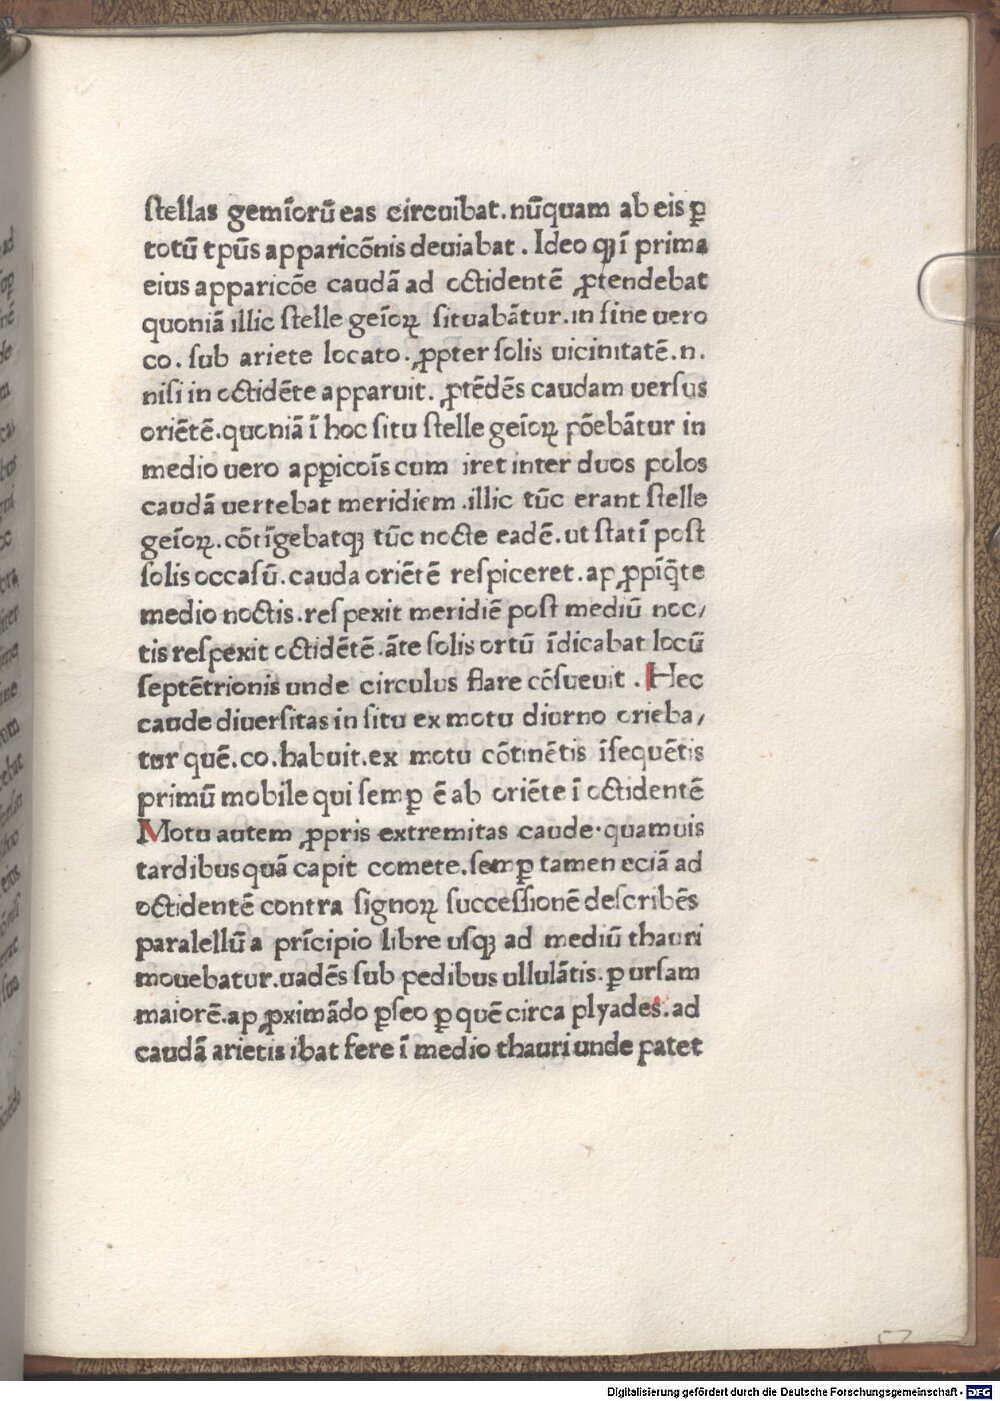 ſtellas gemīorū eas circuibat.nūquam ab eis ꝑ
totū tpūs appariconīs deuiabat . Ideo qꝫ ī prima
eius apparicōe caudā ad octidentē ꝓtendebat
quoniā illic ſtelle geīoꝝ ſituabātur.in fine uero
co. ſub ariete locato.ꝓpter ſolis uicinitatē.n.
niſi in octidēte apparuit. ꝓtēdēs caudam uerſus
oriētē.quoniā ī hoc ſitu ſtelle geīoꝝ pōebātur in
medio uero apꝑicoīs cum iret inter duos polos
caudā uertebat meridiem .illic tūc erant ſtelle
geīoꝝ.cōtīgebatqꝫ tūc nocte eadē.ut ſtatī poſt
ſolis occaſū.cauda oriētē reſpiceret.apꝓpīq̄te
medio noctis.reſpexit meridiē poſt mediū noc/
tis reſpexit octidētē.āte ſolis ortū īdicabat locū
ſeptētrionis unde circulus flare cōſueuit . Hec
caude diuerſitas in ſitu ex motu diurno orieba/
tur quē.co.habuit.ex motu cōtinētis īſequētis
primū mobile qui ſemꝑ ē ab oriēte ī octidentē
Motu autem ꝓpris extremitas caude·quamuis
tardibus quā capit comete.ſemꝑ tamen eciā ad
octidentē contra ſignoꝝ ſucceſſionē deſcribēs
paralellū a prīcipio libre uſqꝫ ad mediū thauri
mouebatur.uadēs ſub pedibus ullulātis.ꝑ urſam
maiorē.apꝓximādo ꝑſeo ꝑ quē circa plyades.ad
caudā arietis ibat fere ī medio thauri unde patet
Digitalisierung gefördert durch die Deutsche Forschungsgemeinschaft - DFG